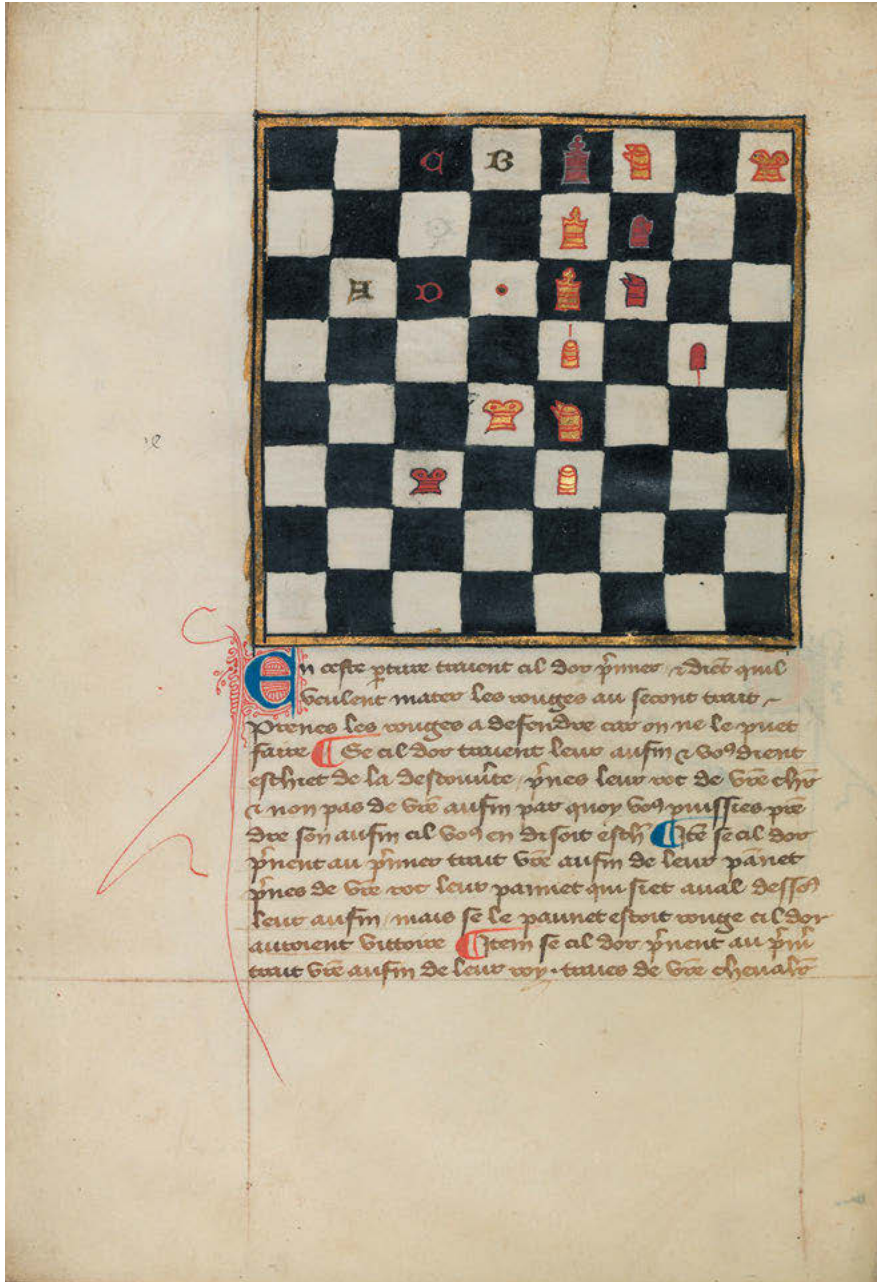 C B
A D
En ceste p̱ture traient cil dor p̄mier ⁊ diēt quil
veulent mater les rouges au secont trait
Prenes les rouges a defendre car on ne le puet
faire ¶ Se cil dor traient leur aufin ⁊ voꝰ dient
eschiet de la descouūte p̄nes leur roc de vr̄e chlr̄
⁊ non pas de vr̄e aufin par quoy voꝰ puissies prē
dre son aufin cil voꝰ en disoit esch̄ ¶ Itē se cil dor
p̄nent au p̄mier trait vr̄e aufin de leur paūnet
p̄nes de vr̄e roc leur paunnet qui siet aual dessoꝰ
leur aufin mais se le paunet estoit rouge cil dor
auroient vittoire ¶ Item se cil dor p̄nent au p̄m̄
trait vr̄e aufin de leur roy traies de vr̄e cheualr̄